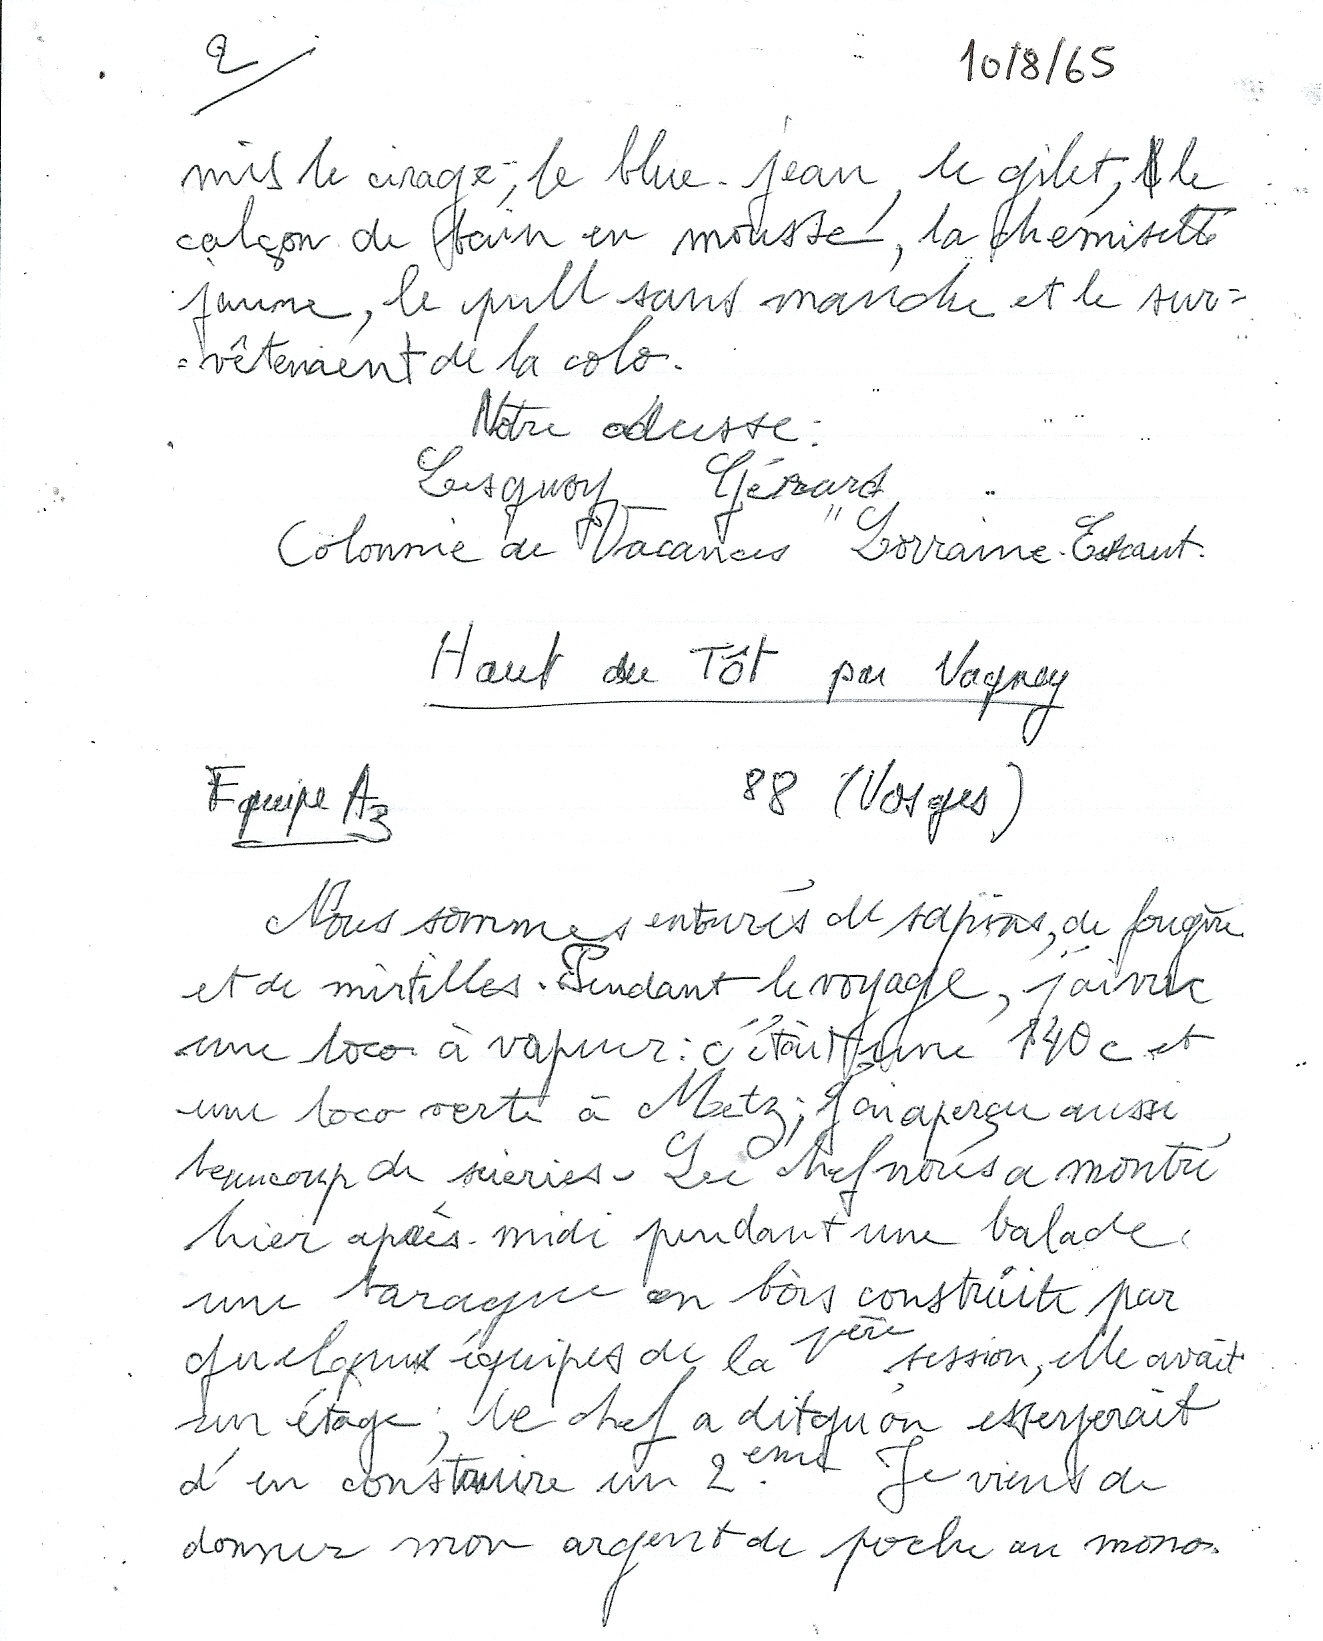 2
10/8/65
mis le cirage, le blue-jean, le gilet, le
calçon de bain en mousse, la chemisette
jaune, le pull sans manche et le sur=
=vêtement de la colo.
Notre adresse:
Lesquoy Gérard
Colonnie de Vacances "Lorraine-Escaut.
Haut du Tôt par Vagney
Equipe A3
88 (Vosges)
Nous sommes enturés de sapins, de fougère
et de mirtilles. Pendant le voyage, j'ai vu
une loco à vapeur: c'était une 140 c et
une loco verte à Metz; j'ai aperçu aussi
beaucoup de scieries. Le chef nous a montré
hier après-midi pendant une balade
une baraque en bois construite par
quelques équipes de la 1ère session, elle avait
un étage; le chef a dit qu'on
d'en construire un 2ème. Je viens de
donner mon argent de poche au mono.